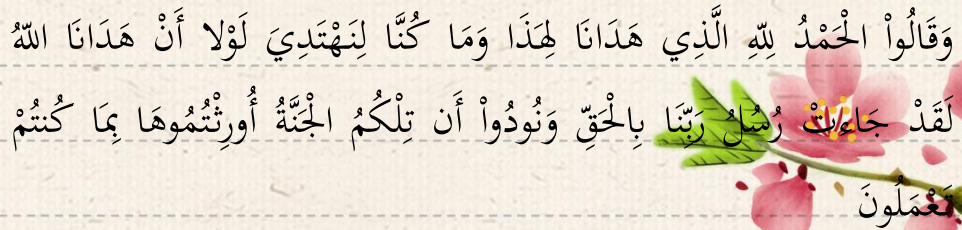 وَقَالُواْ الْحَمْدُ لِلّهِ الَّذِي هَدَانَا لِهَذَا وَمَا كُنَّا لِنَهْتَدِيَ لَوْلا أَنْ هَدَانَا اللّهُ
لَقَدْ جَاءتْ رُسُلُ رَبِّنَا بِالْحَقِّ وَنُودُواْ أَن تِلْكُمُ الْجَنَّةُ أُورِثْتُمُوهَا بِمَا كُنتُمْ
تَعْمَلُونَ